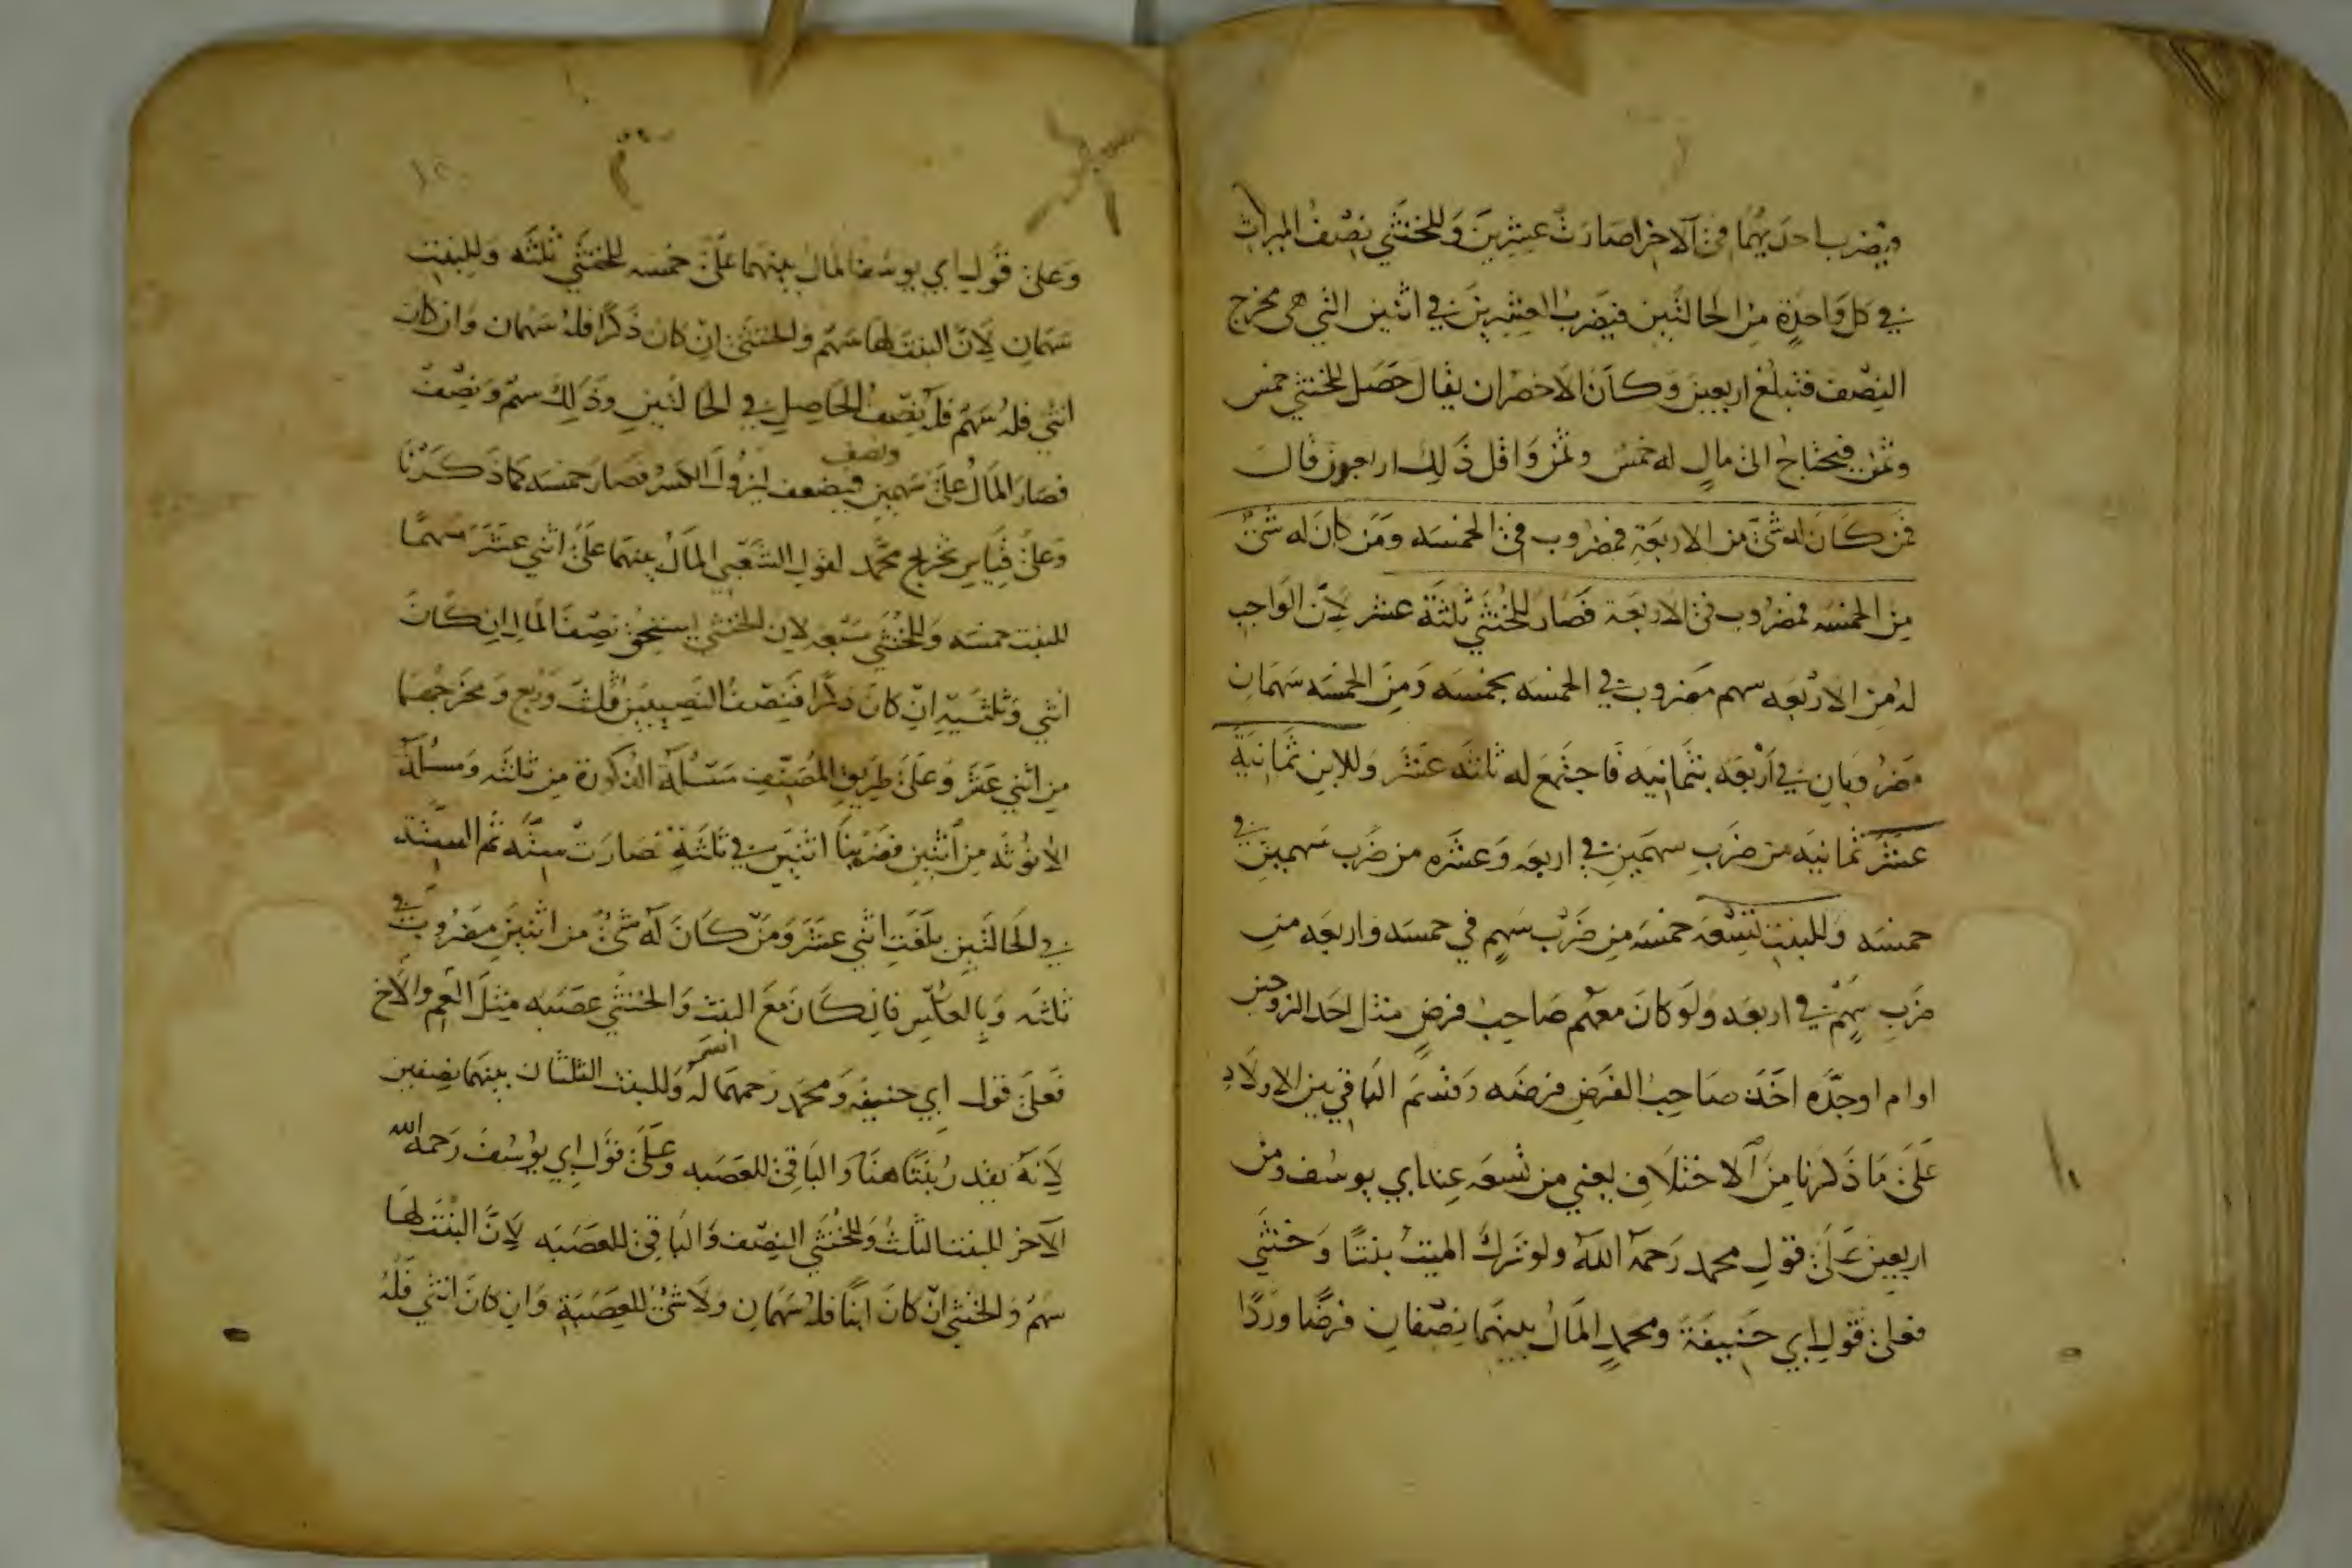 فيضرب احديهما في الآخر صارت عشرين وللخنثى نصف الميراث
في كل واحدة من الحالتين فيضرب العشرين في اثنين التي هي مخرج
النصف فتبلغ اربعين وكان الاخصر ان يقال حصل للخنثى خمس
وثمن فيحتاج الى مال له خمس وثمن واقل ذلك اربعون قال
فمن كان له شئ من الاربعة فمضروب في الخمسه ومن كان له شئ
من الخمسه فمضروب في الاربعة فصار للخنثى ثلثة عشر لأن الواجب
له من الاربعه سهم مضروب في الخمسه بخمسه ومن الخمسه سهمان
مضروبان في اربعه بثمانيه فاجتمع له ثلثه عشر وللابن ثمانية
عشر ثمانيه من ضرب سهمين في اربعه وعشره من ضرب سهمين في
خمسه وللبنت تسعه خمسه من ضرب سهم في خمسه واربعه من
ضرب سهم في اربعه ولو كان معهم صاحب فرض مثل احد الزوجين
او ام او جده اخذ صاحب الفرض فرضه وقسم الباقي بين الاولاد
على ما ذكرنا من الاختلاف يعني من تسعه عند ابي يوسف ومن
اربعين على قول محمد رحمه الله ولو ترك الميت بنتا وخنثى
فعلى قول ابي حنيفة ومحمد المال بينهما نصفان فرضا وردا
وعلى قول ابي يوسف المال بينهما على خمسه للخنثى ثلثه وللبنت
سهمان لأن البنت لها سهم والخنثى ان كان ذكرا فله سهمان وان كان
انثى فله سهم فله نصف الحاصل في الحالتين وذلك سهم ونصف
فصار المال على سهمين ونصف فيضعف ليزول الكسر فصار خمسه كما ذكرنا
وعلى قياس تخريج محمد لقول الشعبي المال بينهما على اثني عشر سهما
للبنت خمسه وللخنثى سبعه لان الخنثى يستحق نصف المال ان كان
انثى وثلثيه ان كان ذكرا فنصف النصيبين ثلث وربع ومخرجهما
من اثني عشر وعلى طريق المصنف مسئلة الذكورة من ثلثه ومسئلة
الانوثه من اثنين فضربنا اثنين في ثلثة فصارت سته ثم الستة
في الحالتين بلغت اثني عشر ومن كان له شئ من اثنين مضروب في
ثلثه وبالعكس فان كان مع البنت والخنثى عصبه مثل العم والاخ
فعلى قول ابي حنيفه ومحمد رحمهما الله له وللبنت الثلثان بينهما نصفين
لانه يقدر بنتا هنا والباقي للعصبه وعلى قول ابي يوسف رحمه الله
الآخر للبنت الثلث وللخنثى النصف والباقي للعصبه لأن البنت لها
سهم والخنثى ان كان ابنا فله سهمان ولا شئ للعصبة وان كان انثى فله